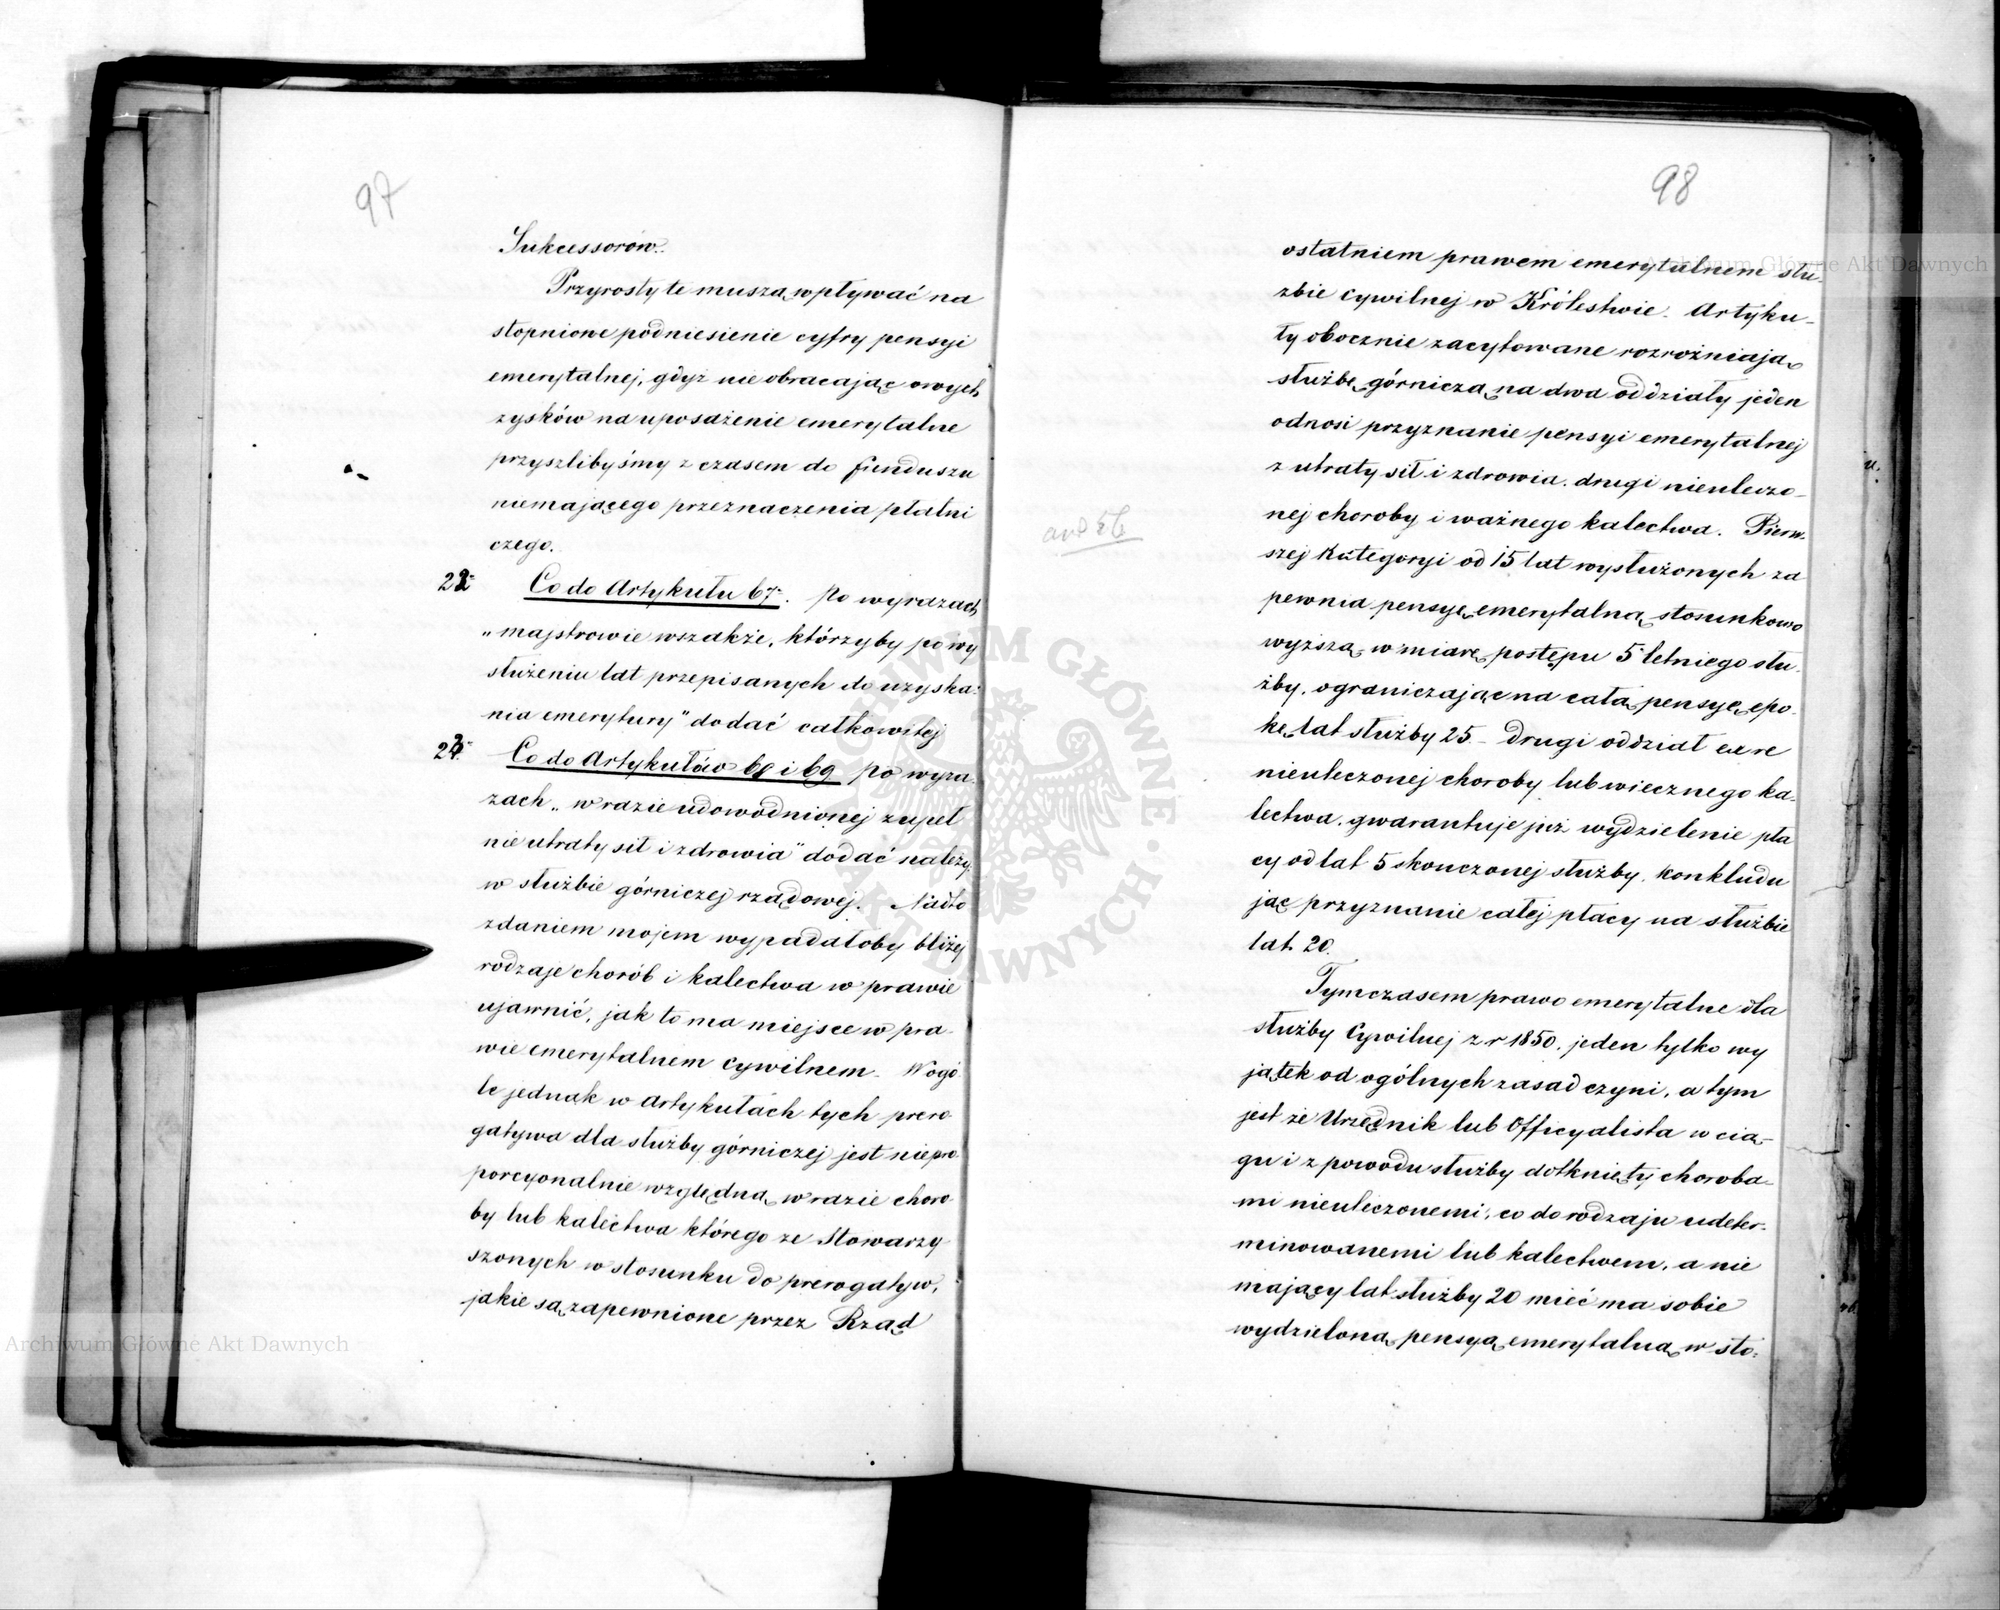 97
Sukcessorów.
Przyrosty te muszą wpływać na
stopniowe podniesienie cyfry pensyi
emerytalnej, gdyż nie obracając owych
zysków na uposażenie emerytalne
przyszlibyśmy z czasem do funduszu
niemającego przeznaczenia płatni
czego.
Co do Artykułu 67. po wyrazach
„majstrowie wszakże, którzyby po wy
służeniu lat przepisanych do uzyska:
nia emerytury" dodać całkowitej
Co do Artykułów 68 i 69 po wyra
zach „w razie udowodnionej zupeł
nie utraty sił i zdrowia" dodać należy
w służbie górniczej rządowej. Nadto
zdaniem mojem wypadałoby bliżej
rodzaje chorób i kalectwa w prawie
ujawnić, jak to ma miejsce w pra-
wie emerytalnem cywilnem. Wogó
le jednak w Artykułach tych prero
gatywa dla służby górniczej jest niepro
porcyonalnie względna w razie choro
by lub kalectwa którego ze Stowarzy
szonych w stosunku do prerogatyw,
jakie są zapewnione przez Rząd
98
ostatniem prawem emerytalnem słu-
żbie cywilnej w Królestwie. Artyku-
ły obocznie zacytowane rozrożniają
służbę górniczą na dwa oddziały jeden
odnosi przyznanie pensyi emerytalnej
z utraty sił i zdrowia. drugi nieuleczo-
nej choroby i ważnego kalectwa. Pierw-
szej Kategoryi od 15 lat wysłużonych za
pewnia pensyę emerytalną stosunkowo
wyższą w miarę postępu 5 letniego słu-
żby, ograniczając na całą pensyę epo-
kę lat służby 25 - Drugi oddział ex re
nieuleczonej choroby lub wiecznego ka-
lectwa, gwarantuje już wydzielenie pła
cy od lat 5 skonczonej służby, konkludu
jąc przyznanie całej płacy na służbie
lat 20.
Tymczasem prawo emerytalne dla
służby Cywilnej z r 1850. jeden tylko wy
jątek od ogólnych zasad czyni, a tym
jest że Urzędnik lub Officyalista w cią-
gu i z powodu służby dotknięty choroba-
mi nieuleczonemi, co do rodzaju udeter-
minowanemi lub kalectwem, a nie
mający lat służby 20 mieć ma sobie
wydzieloną pensyą emerytalną w sto-
Archiwum Główne Akt Dawnych
Archiwum Główne Akt Dawnych
ARCHIWUM GŁÓWNE AKT DAWNYCH